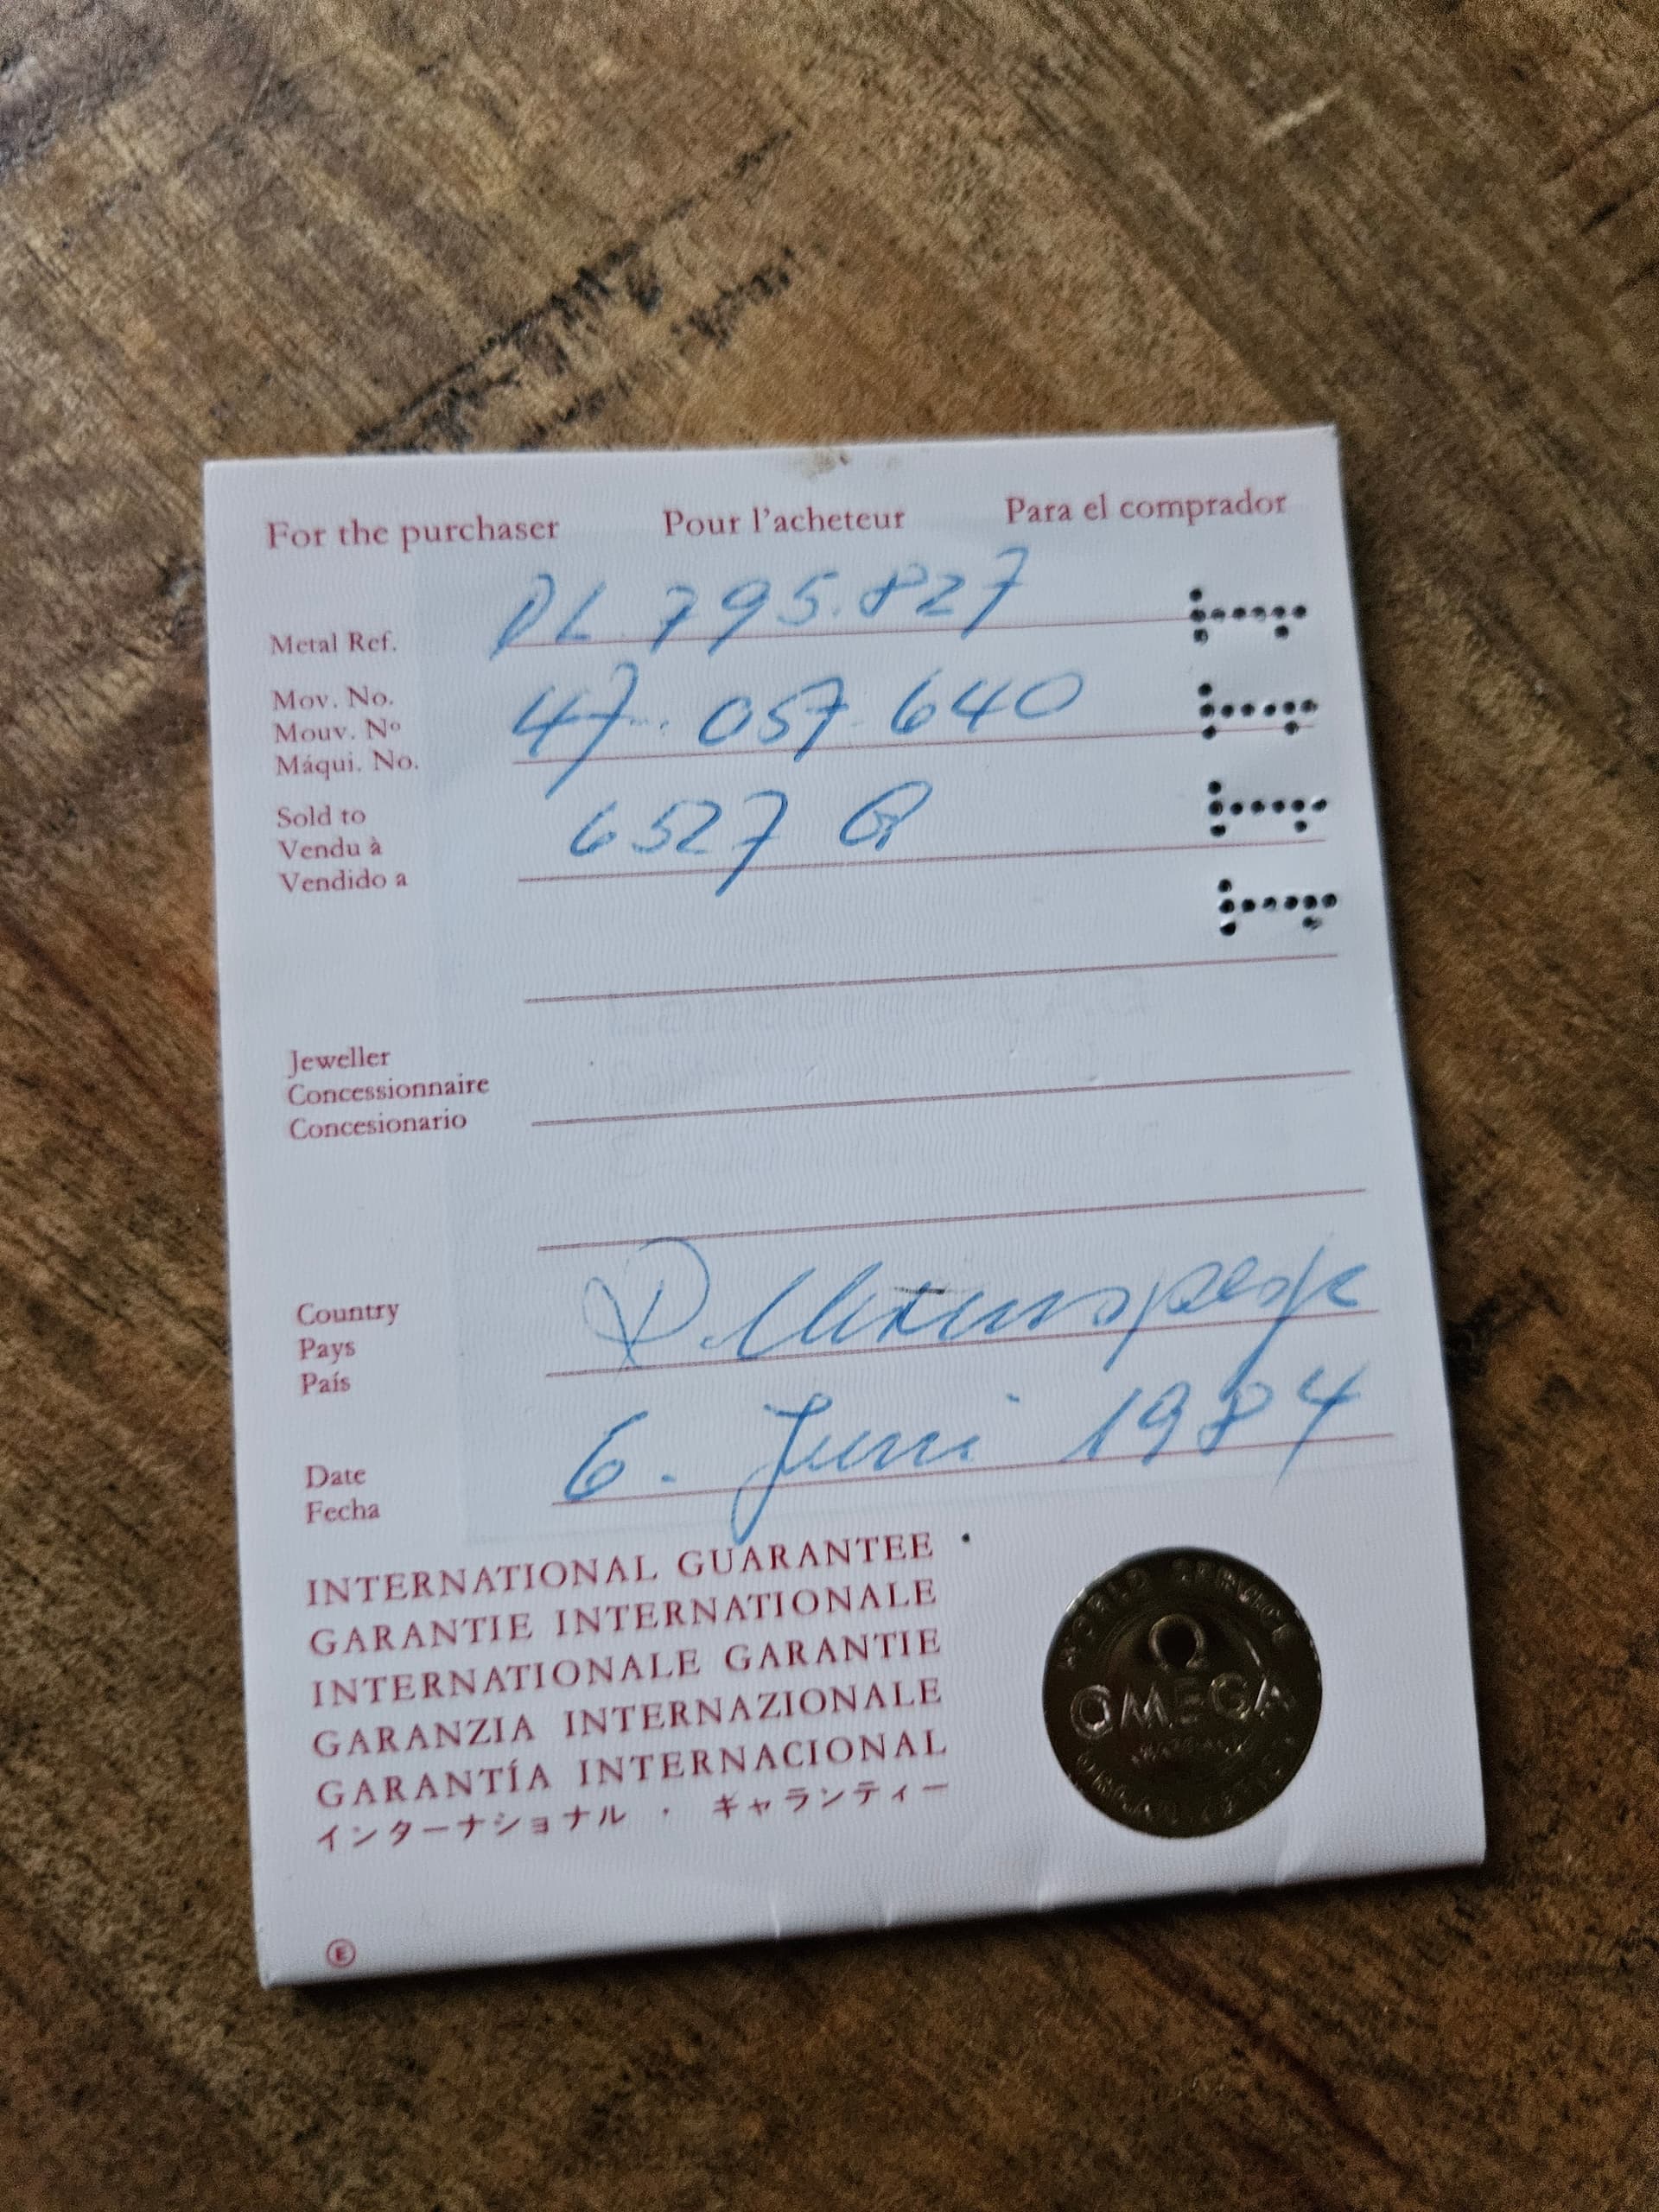 For the purchaser Pour l'acheteur Para el comprador
Metal Ref. DL 795.827
Mov. No.
Mouv. Nº 47. 057 640
Máqui. No.
Sold to
Vendu à 6527
Vendido a
Jeweller
Concessionnaire
Concesionario
Country
Pays
País
Date 6. Juni 1984
Fecha
INTERNATIONAL GUARANTEE
GARANTIE INTERNATIONALE
INTERNATIONALE GARANTIE
GARANZIA INTERNAZIONALE
GARANTÍA INTERNACIONAL
インターナショナル・ギャランティー
WORLD SERVICE
Ω
OMEGA
E